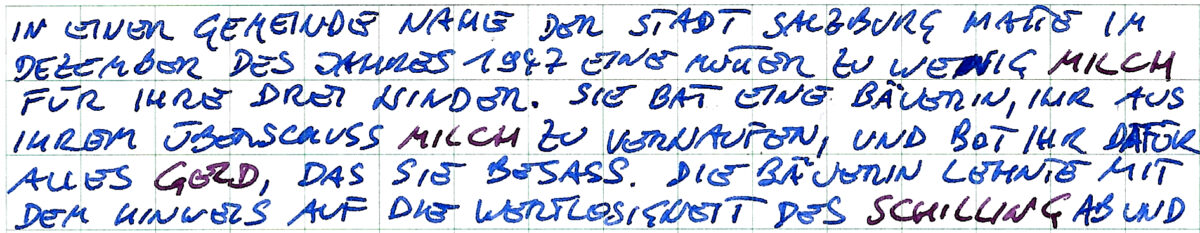 IN EINER GEMEINDE NAHE DER STADT SALZBURG HATTE IM
DEZEMBER DES JAHRES 1947 EINE MUTTER ZU WENIG MILCH
FÜR IHRE DREI KINDER. SIE BAT EINE BÄUERIN, IHR AUS
IHREM ÜBERSCHUSS MILCH ZU VERKAUFEN, UND BOT IHR DAFÜR
ALLES GELD, DAS SIE BESASS. DIE BÄUERIN LEHNTE MIT
DEM HINWEIS AUF DIE WERTLOSIGKEIT DES SCHILLING AB UND